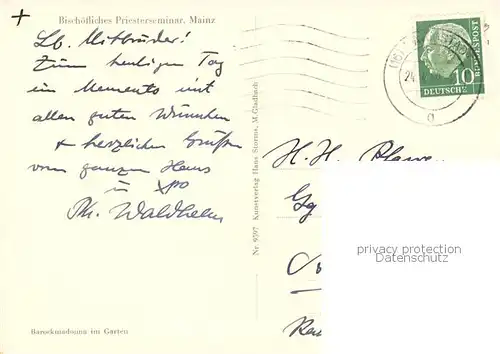 Bischöfliches Priesterseminar, Mainz
Lb. Mitbrüder!
Zum heutigen Tag
ein Memento mit
allen guten Wünschen
+ herzlichen Grüßen
vom ganzen Haus
in Xpo
Ph. Waldhelm
Barockmadonna im Garten
Nr. 9397 Kunstverlag Hans Storms, M. Gladbach
(16)
24
10
DEUTSCHE
BUNDESPOST
H. H. Pfarrer
privacy protection
Datenschutz